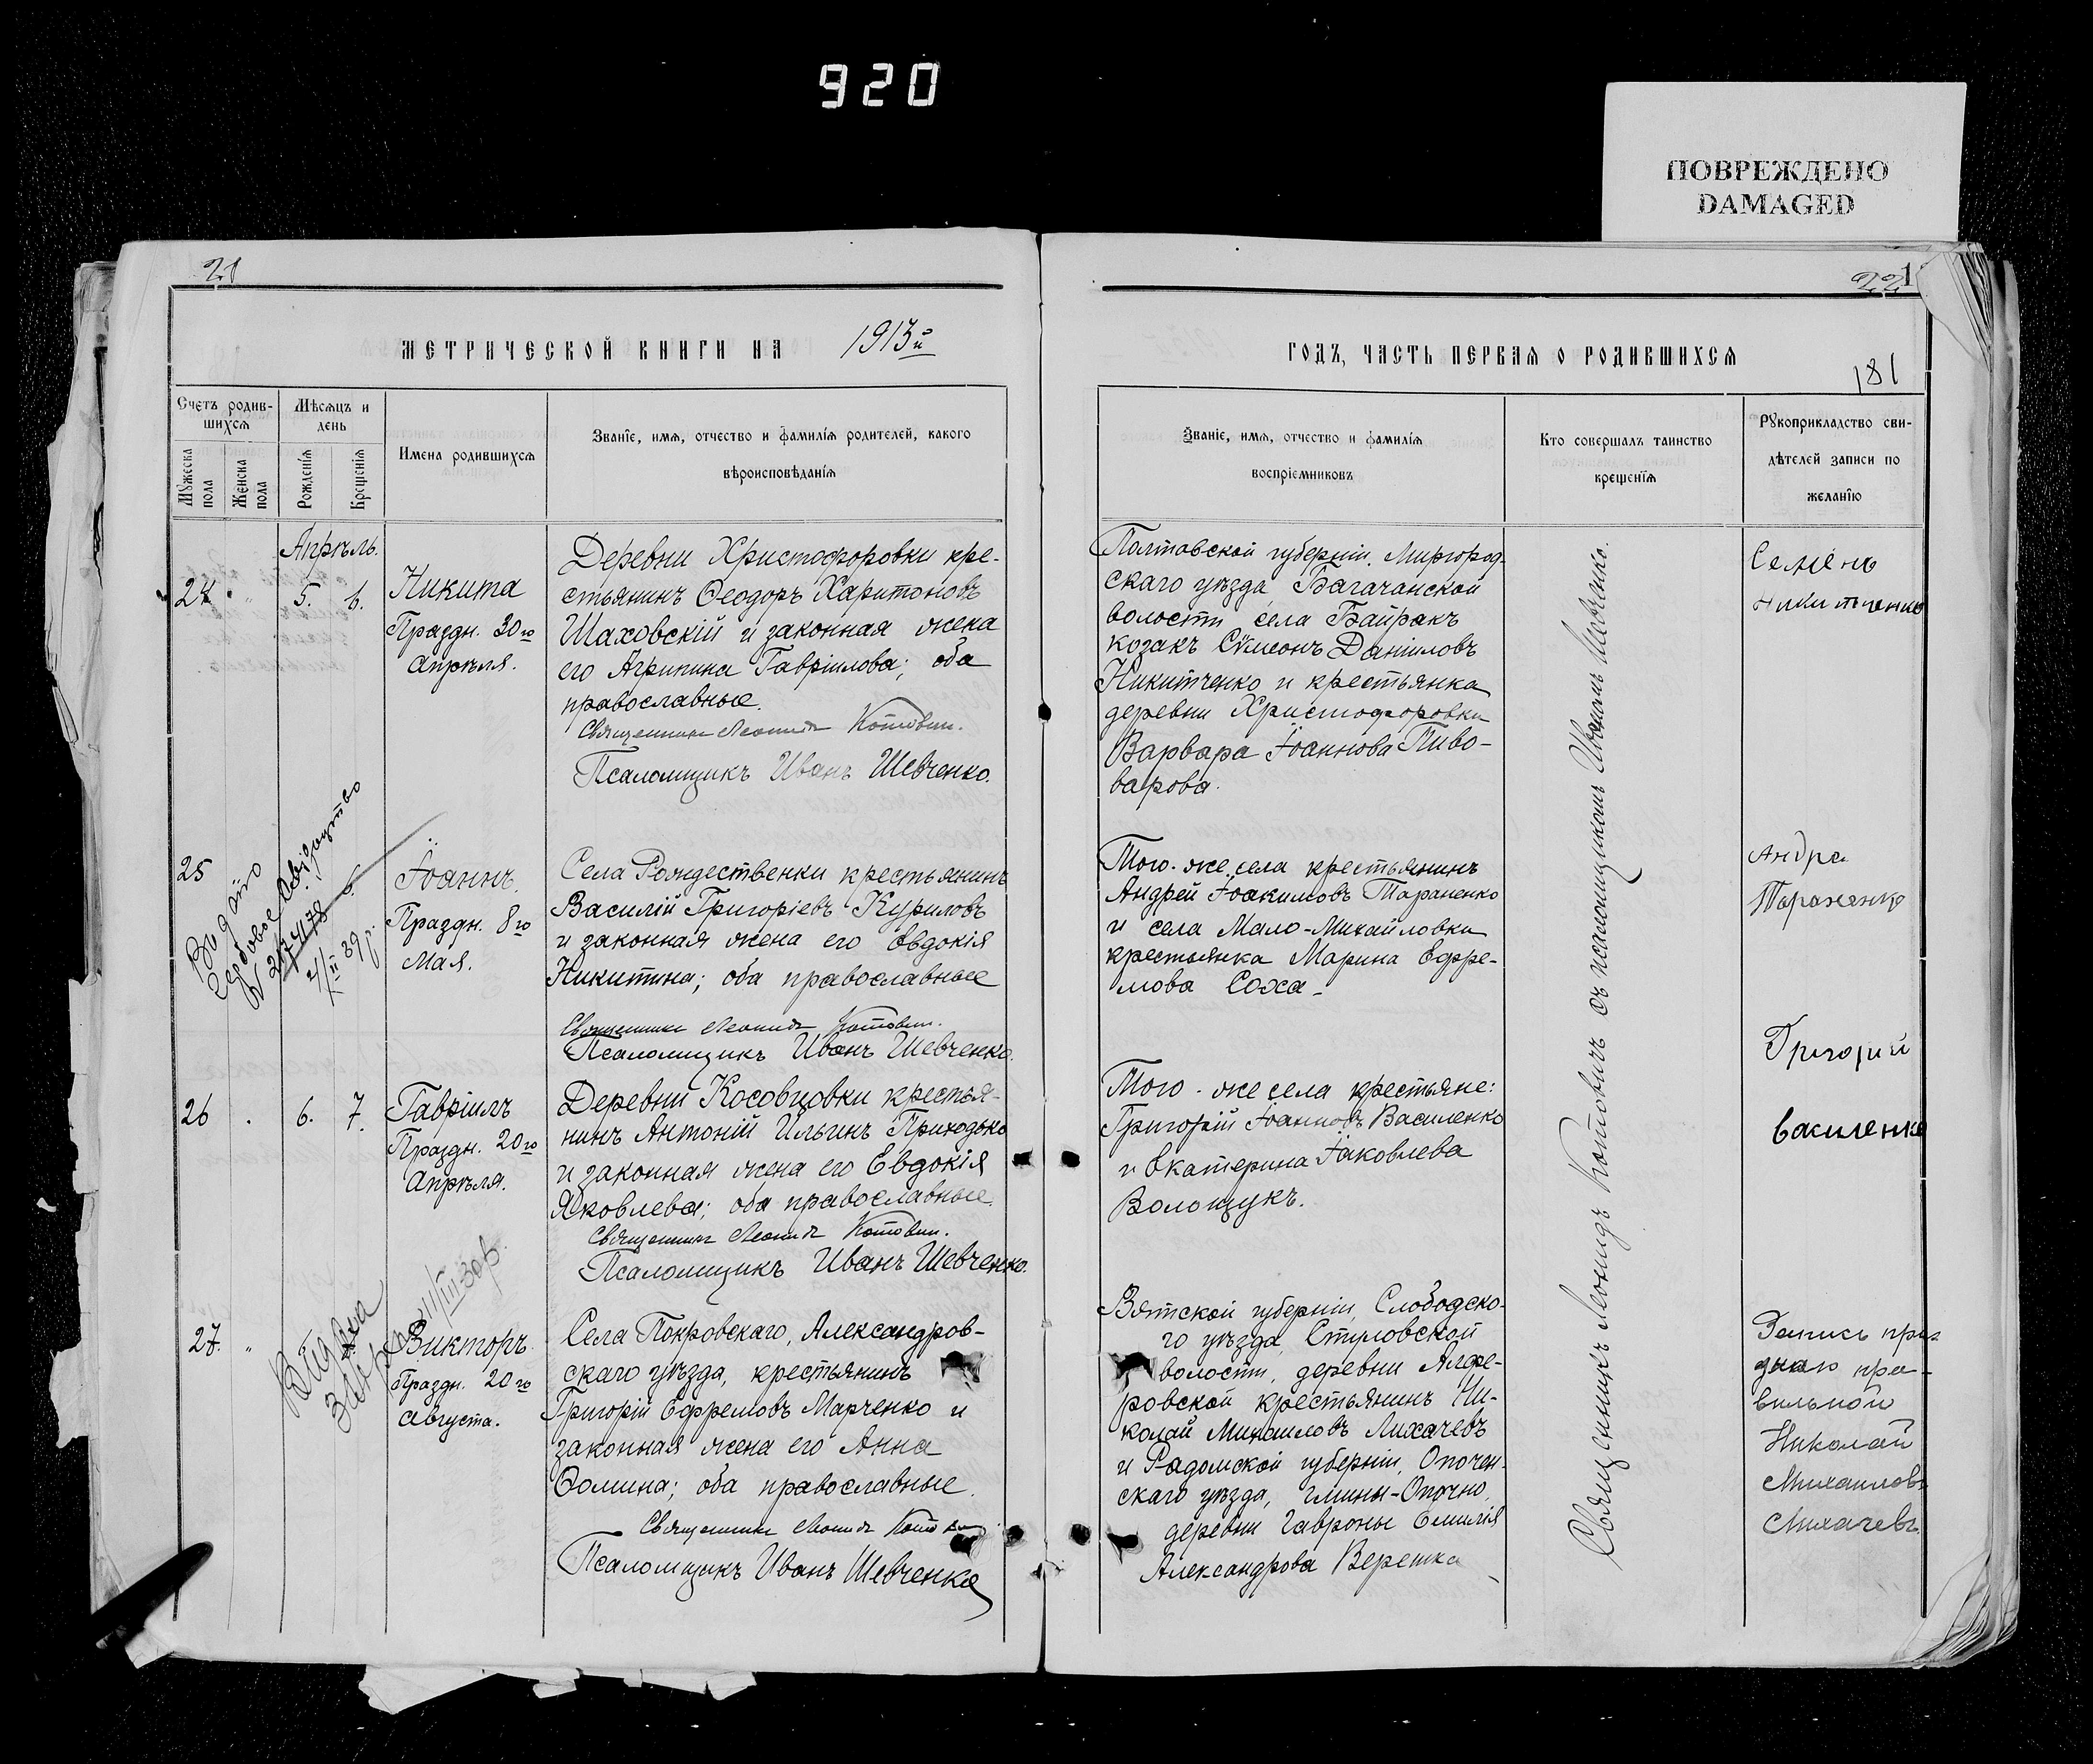 920
ПОВРЕЖДЕНО
DAMAGED
21
МЕТРИЧЕСКОЙ КНИГИ НА 1913й
Счетъ родив-
шихся
Мѣсяцъ и
день
Мужеска
пола
Женска
пола
Рожденія
Крещенія
Имена родившихся
Званіе, имя, отчество и фамилія родителей, какого
вѣроисповѣданія
Апрѣль.
24 " 5. 6.
Никита
Праздн. 30го
Апрѣля.
Деревни Христофоровки кре-
стьянинъ Ѳеодоръ Харитоновъ
Шаховскій и законная жена
его Агрипина Гавріилова; оба
православные.
Священникъ Леонидъ Котович.
Псаломщикъ Иванъ Шевченко.
25
Видано
гербовое свідоцтво
2/ІІ 39 р.
Іоаннъ.
Праздн. 8го
Мая.
Села Рождественки крестьянинъ
Василій Григоріевъ Куриловъ
и законная жена его Евдокія
Никитина; оба православные
Священникъ Леонидъ Котович.
Псаломщикъ Иванъ Шевченко.
26 . 6. 7.
Гавріилъ
Праздн. 20го
Апрѣля.
Деревни Косовцовки крестья-
нинъ Антоній Ильинъ Приходько
и законная жена его Евдокія
Яковлева; оба православные.
Священникъ Леонидъ Котович.
Псаломщикъ Иванъ Шевченко.
27. "
Викторъ.
Праздн. 20го
Августа.
Села Покровскаго, Александров-
скаго уѣзда, крестьянинъ
Григорій Ефремовъ Марченко и
законная жена его Анна
Ѳомина; оба православные.
Священникъ Леонидъ Котович.
Псаломщикъ Иванъ Шевченко
22
1
ГОДЪ, ЧАСТЬ ПЕРВАЯ О РОДИВШИХСЯ
181
Званіе, имя, отчество и фамилія
воспріемниковъ
Кто совершалъ таинство
крещенія
Рукоприкладство сви-
дѣтелей записи по
желанію
Полтавской губерніи, Миргород-
скаго уѣзда, Багачанской
волости села Байракъ
козакъ Сѵмеонъ Даніиловъ
Никитченко и крестьянка
деревни Христофоровки
Варвара Іоаннова Пиво-
варова.
Семёнъ
Никитченко
Того-же села крестьянинъ
Андрей Іоакимовъ Тараненко
и села Мало-Михайловки
крестьянка Марина Ефре-
мова Соха-
Андре
Тараненко
Того-же села крестьяне:
Григорій Іоанновъ Василенко
и Екатерина Іаковлева
Волощукъ.
Григорий
василенко
Вятской губерніи, Слободско-
го уѣзда, Стуловской
волости, деревни Алфе-
ровской крестьянинъ Ни-
колай Михаиловъ Лихачевъ
и Радомской губерніи, Опочен-
скаго уѣзда, гмины-Опочно,
деревни Гавроны Емилія
Александрова Верешка
Запись приз
наю пра-
вильной
Николай
Михаиловъ
Лихачевъ.
Священникъ Леонидъ Котовичъ съ псаломщикомъ Иваномъ Шевченко.